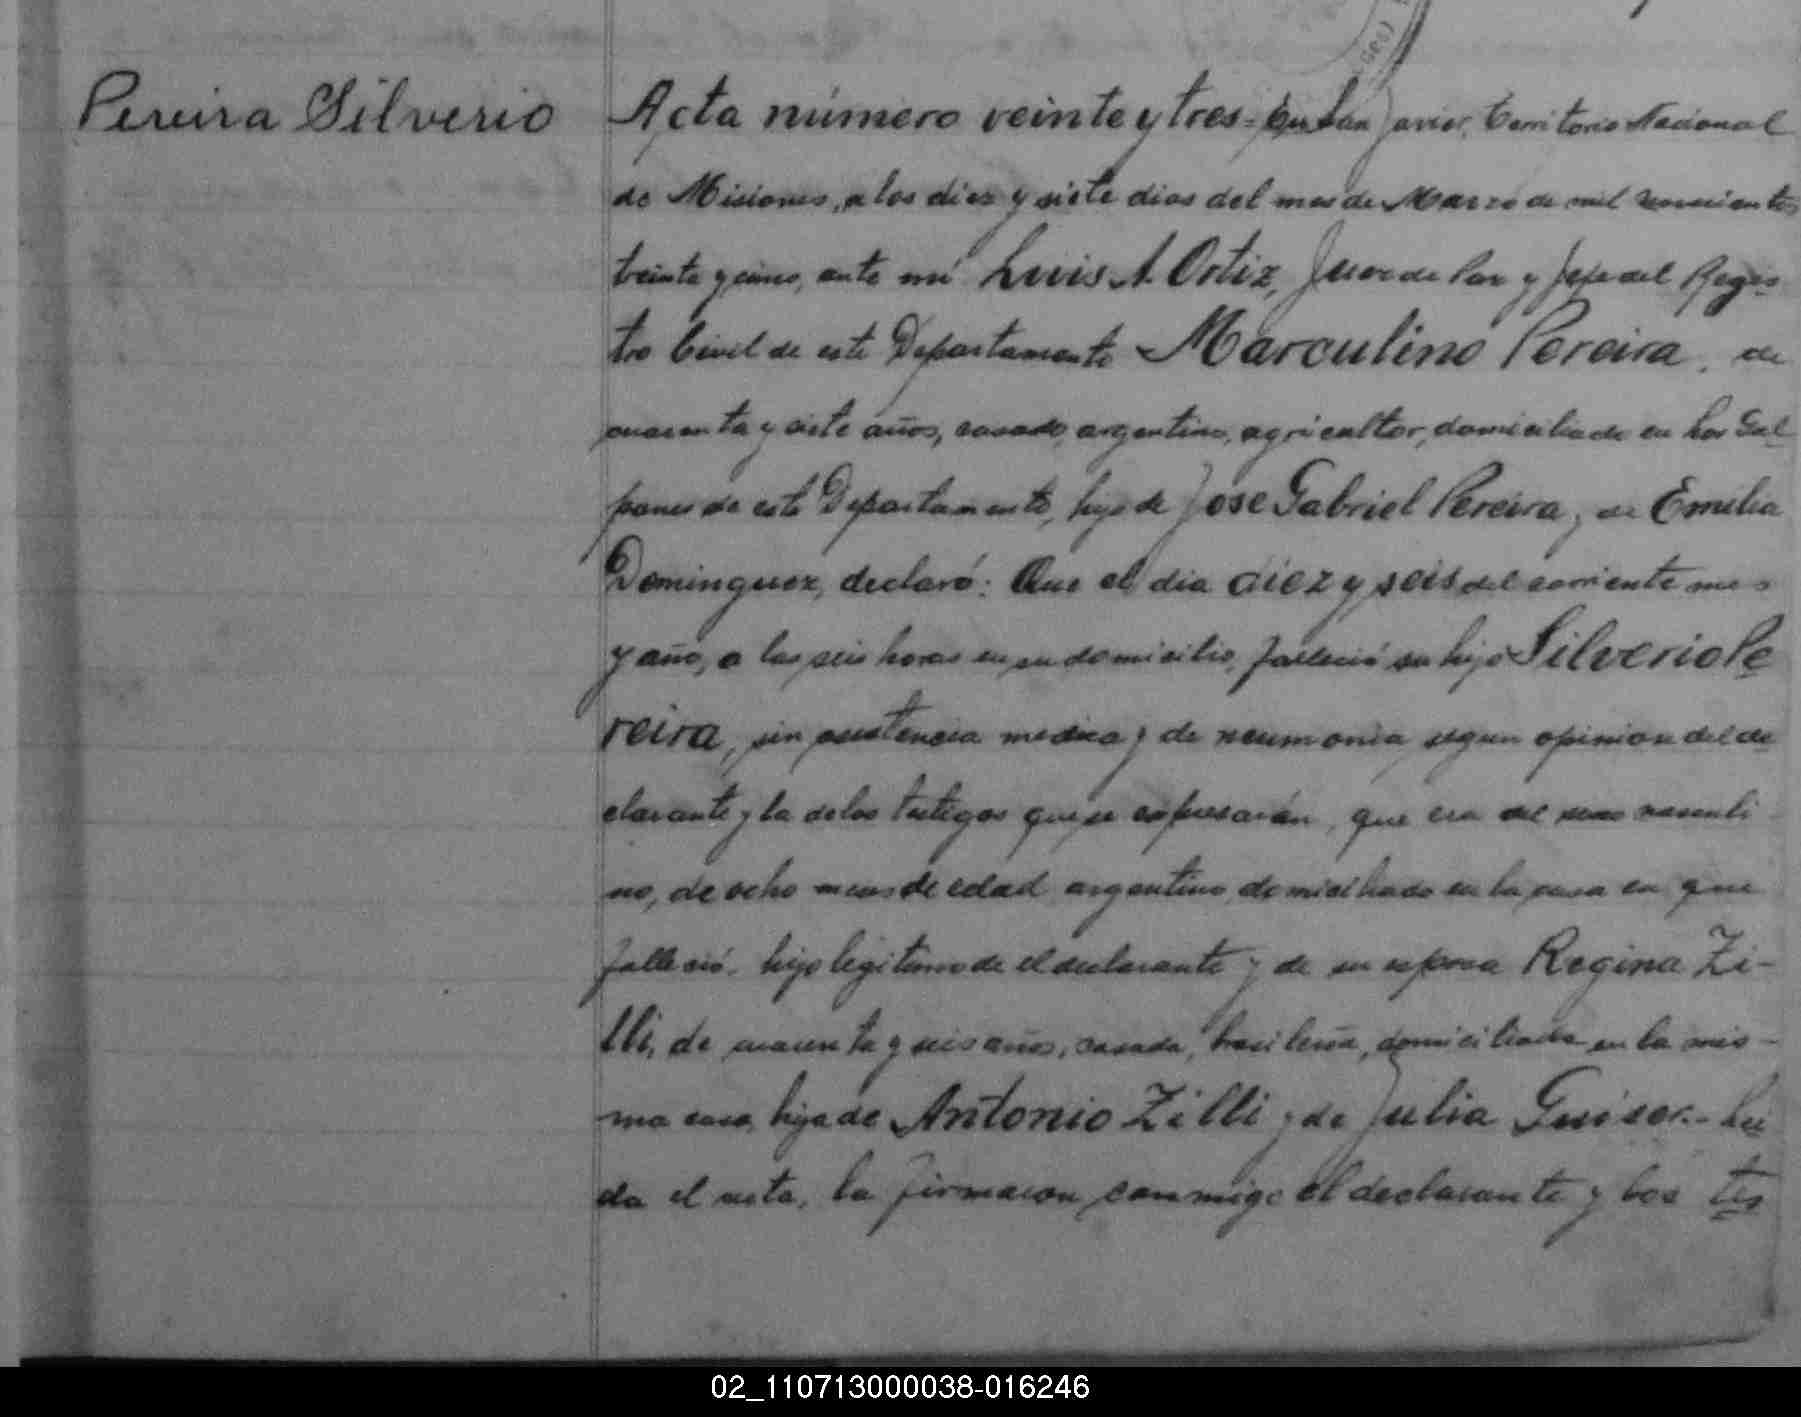 Pereira Silverio
Acta número veinte y tres = En San Javier, Territorio Nacional
de Misiones, a los diez y siete dias del mes de Marzo de mil novecientos
treinta y cinco, ante mi Luis A. Ortiz, Juez de Paz y Jefe del Regis
tro Civil de este Departamento Marculino Pereira, de
cuarenta y siete años, casado, argentino, agricultor, domiciliado en Los Gal
pones de este Departamento, hijo de Jose Gabriel Pereira y de Emilia
Dominguez, declaró: Que el dia diez y seis del corriente mes
y año, a las seis horas en su domicilio, falleció su hijo Silverio Pe
reira, sin asistencia medica y de neumonia segun opinion del de
clarante y la de los testigos que se expresarán, que era del sexo masculi
no, de ocho meses de edad argentino, domiciliado en la casa en que
falleció, hijo legitimo de el declarante y de su esposa Regina Zi-
lli, de cuarenta y seis años, casada, brasileña, domiciliada en la mis-
ma casa, hija de Antonio Zilli y de Julia .- Lei
da el acta, la firmaron conmigo el declarante y los tes
02_110713000038-016246